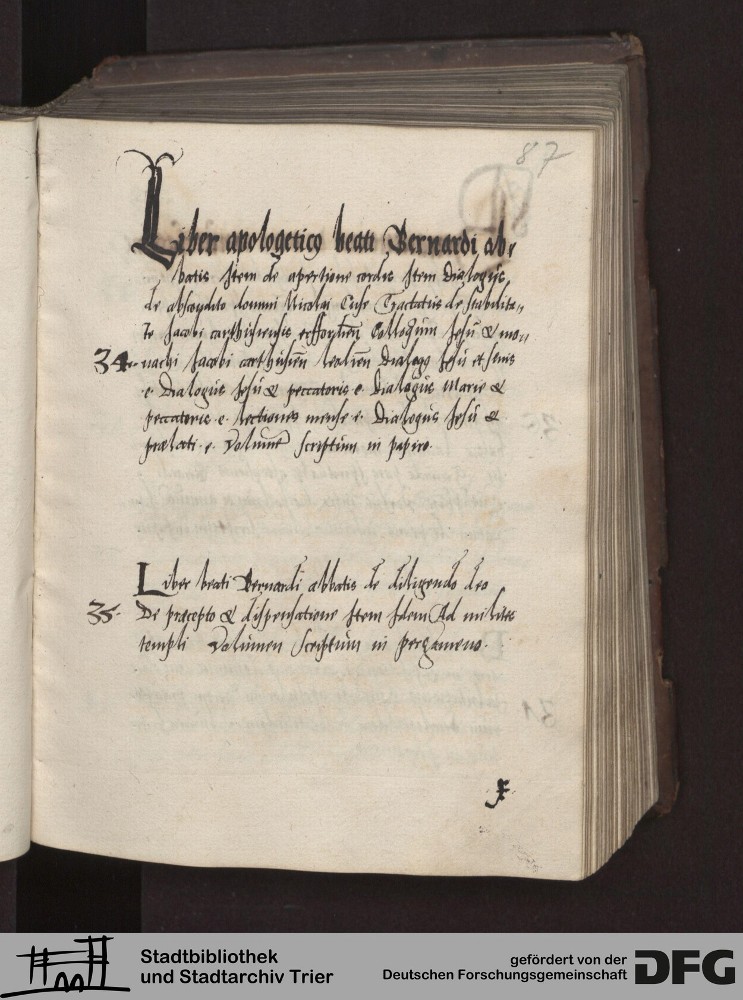 87
Liber apologeticꝯ beati Bernardi ab-
batis Item de apertione cordis Item Dialogus
de abscondito domini Nicolai Cuse Tractatus de stabilita-
te Jacobi carthusiensis erfforden̄ Colloqium Jesu & mo-
34 nachi Jacobi carthusien̄ Dialogꝯ Jesu et senis
e Dialogus Jesu & peccatoris e Dialogus Marie &
peccatoris e lectiones mense e Dialogus Jesu &
prælati e Volumē scriptum in papiro
Liber beati Bernardi abbatis de diligendo deo
35 De præcepto & dispensatione Item Idem Ad milites
templi Volumen scriptum in pergameno
Stadtbibliothek
und Stadtarchiv Trier
gefördert von der
Deutschen Forschungsgemeinschaft
DFG